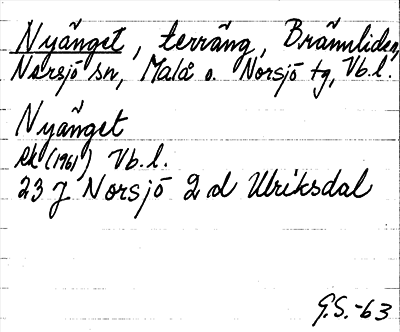 Nyänget, terräng, Brännliden,
Norsjö sn, Malå o. Norsjö tg, Vb.l.
Nyänget
Ek (1961) Vb.l.
23 J Norsjö 2 d Ulriksdal
G.S.-63